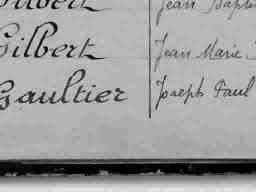 Gilbert Jean Baptis
Gilbert Jean Marie
Gaultier Joseph Paul